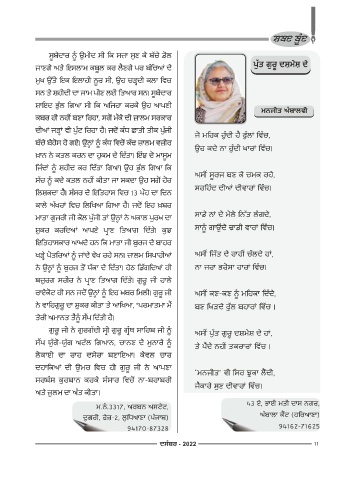 ਸ਼ਬਦ ਬੂੰਦ
ਸੂਬੇਦਾਰ ਨੂੰ ਉਮੀਦ ਸੀ ਕਿ ਸਜ਼ਾ ਸੁਣ ਕੇ ਬੱਚੇ ਡੋਲ
ਜਾਣਗੇ ਅਤੇ ਇਸਲਾਮ ਕਬੂਲ ਕਰ ਲੈਣਗੇ ਪਰ ਬੱਚਿਆਂ ਦੇ
ਮੁਖ ਉੱਤੇ ਇਕ ਇਲਾਹੀ ਨੂਰ ਸੀ, ਉਹ ਚੜ੍ਹਦੀ ਕਲਾ ਵਿਚ
ਸਨ ਤੇ ਸ਼ਹੀਦੀ ਦਾ ਜਾਮ ਪੀਣ ਲਈ ਤਿਆਰ ਸਨ। ਸੂਬੇਦਾਰ
ਸ਼ਾਇਦ ਭੁੱਲ ਗਿਆ ਸੀ ਕਿ ਅਜਿਹਾ ਕਰਕੇ ਉਹ ਆਪਣੀ
ਕਬਰ ਹੀ ਨਹੀਂ ਬਣਾ ਰਿਹਾ, ਸਗੋਂ ਮੌਕੇ ਦੀ ਜ਼ਾਲਮ ਸਰਕਾਰ
ਦੀਆਂ ਜੜ੍ਹਾਂ ਵੀ ਪੁੱਟ ਰਿਹਾ ਹੈ। ਜਦੋਂ ਕੰਧ ਛਾਤੀ ਤੀਕ ਪੁੱਜੀ
ਬੱਚੇ ਬੇਹੋਸ਼ ਹੋ ਗਏ। ਉਨ੍ਹਾਂ ਨੂੰ ਕੰਧ ਵਿਚੋਂ ਕੱਢ ਜ਼ਾਲਮ ਵਜ਼ੀਰ
ਖ਼ਾਨ ਨੇ ਕਤਲ ਕਰਨ ਦਾ ਹੁਕਮ ਦੇ ਦਿੱਤਾ। ਇੰਝ ਦੋ ਮਾਸੂਮ
ਜਿੰਦਾਂ ਨੂੰ ਸ਼ਹੀਦ ਕਰ ਦਿੱਤਾ ਗਿਆ। ਉਹ ਭੁੱਲ ਗਿਆ ਕਿ
ਸੱਚ ਨੂੰ ਕਦੇ ਕਤਲ ਨਹੀਂ ਕੀਤਾ ਜਾ ਸਕਦਾ ਉਹ ਸਗੋਂ ਹੋਰ
ਲਿਸ਼ਕਦਾ ਹੈ। ਸੰਸਾਰ ਦੇ ਇਤਿਹਾਸ ਵਿਚ 13 ਪੋਹ ਦਾ ਦਿਨ
ਕਾਲੇ ਅੱਖਰਾਂ ਵਿਚ ਲਿਖਿਆ ਗਿਆ ਹੈ। ਜਦੋਂ ਇਹ ਖ਼ਬਰ
ਮਾਤਾ ਗੁਜਰੀ ਜੀ ਕੋਲ ਪੁੱਜੀ ਤਾਂ ਉਨ੍ਹਾਂ ਨੇ ਅਕਾਲ ਪੁਰਖ ਦਾ
ਸ਼ੁਕਰ ਕਰਦਿਆਂ ਆਪਣੇ ਪ੍ਰਾਣ ਤਿਆਗ ਦਿੱਤੇ। ਕੁਝ
ਇਤਿਹਾਸਕਾਰ ਆਖਦੇ ਹਨ ਕਿ ਮਾਤਾ ਜੀ ਬੁਰਜ ਦੇ ਬਾਹਰ
ਖੜ੍ਹੇ ਪੋਤਰਿਆਂ ਨੂੰ ਜਾਂਦੇ ਵੇਖ ਰਹੇ ਸਨ। ਜ਼ਾਲਮ ਸਿਪਾਹੀਆਂ
ਨੇ ਉਨ੍ਹਾਂ ਨੂੰ ਬੁਰਜ ਤੋਂ ਧੱਕਾ ਦੇ ਦਿੱਤਾ। ਹੇਠ ਡਿੱਗਦਿਆਂ ਹੀ
ਬਜ਼ੁਰਗ ਸਰੀਰ ਨੇ ਪ੍ਰਾਣ ਤਿਆਗ ਦਿੱਤੇ। ਗੁਰੂ ਜੀ ਹਾਲੇ
ਰਾਏਕੋਟ ਹੀ ਸਨ ਜਦੋਂ ਉਨ੍ਹਾਂ ਨੂੰ ਇਹ ਖ਼ਬਰ ਮਿਲੀ। ਗੁਰੂ ਜੀ
ਨੇ ਵਾਹਿਗੁਰੂ ਦਾ ਸ਼ੁਕਰ ਕੀਤਾ ਤੇ ਆਖਿਆ, 'ਪਰਮਾਤਮਾ ਮੈਂ
ਤੇਰੀ ਅਮਾਨਤ ਤੈਨੂੰ ਸੌਂਪ ਦਿੱਤੀ ਹੈ।
ਗੁਰੂ ਜੀ ਨੇ ਗੁਰਗੱਦੀ ਸ੍ਰੀ ਗੁਰੂ ਗ੍ਰੰਥ ਸਾਹਿਬ ਜੀ ਨੂੰ
ਸੌਂਪ ਯੁੱਗੋ-ਯੁੱਗ ਅਟੱਲ ਗਿਆਨ, ਚਾਨਣ ਦੇ ਮੁਨਾਰੇ ਨੂੰ
ਲੋਕਾਈ ਦਾ ਰਾਹ ਦਸੇਰਾ ਬਣਾਇਆ। ਕੇਵਲ ਚਾਰ
ਦਹਾਕਿਆਂ ਦੀ ਉਮਰ ਵਿਚ ਹੀ ਗੁਰੂ ਜੀ ਨੇ ਆਪਣਾ
ਸਰਬੰਸ ਕੁਰਬਾਨ ਕਰਕੇ ਸੰਸਾਰ ਵਿਚੋਂ ਨਾ-ਬਰਾਬਰੀ
ਅਤੇ ਜ਼ੁਲਮ ਦਾ ਅੰਤ ਕੀਤਾ।
ਮ.ਨੰ.3317, ਅਰਬਨ ਅਸਟੇਟ,
ਦੁਗਰੀ, ਫੇਜ਼-2, ਲੁਧਿਆਣਾ (ਪੰਜਾਬ)
94170-87328
ਪੁੱਤ ਗੁਰੂ ਦਸ਼ਮੇਸ਼ ਦੇ
ਮਨਜੀਤ ਅੰਬਾਲਵੀ
ਜੋ ਮਹਿਕ ਹੁੰਦੀ ਹੈ ਫੁੱਲਾਂ ਵਿੱਚ,
ਉਹ ਕਦੇ ਨਾ ਹੁੰਦੀ ਖਾਰਾਂ ਵਿੱਚ।
ਅਸੀਂ ਸੂਰਜ ਬਣ ਕੇ ਚਮਕ ਰਹੇ,
ਸਰਹਿੰਦ ਦੀਆਂ ਦੀਵਾਰਾਂ ਵਿੱਚ।
ਸਾਡੇ ਨਾਂ ਦੇ ਮੇਲੇ ਨਿੱਤ ਲੱਗਦੇ,
ਸਾਨੂੰ ਗਾਉਂਦੇ ਢਾਡੀ ਵਾਰਾਂ ਵਿੱਚ।
ਅਸੀਂ ਜਿੱਤ ਦੇ ਰਾਹੀਂ ਚੱਲਦੇ ਹਾਂ,
ਨਾ ਜ਼ਰਾ ਭਰੋਸਾ ਹਾਰਾਂ ਵਿੱਚ।
ਅਸੀਂ ਕਣ-ਕਣ ਨੂੰ ਮਹਿਕਾ ਦਿੰਦੇ,
ਬਣ ਖਿੜਦੇ ਫੁੱਲ ਬਹਾਰਾਂ ਵਿੱਚ ।
ਅਸੀਂ ਪੁੱਤ ਗੁਰੂ ਦਸ਼ਮੇਸ਼ ਦੇ ਹਾਂ,
ਤੇ ਪੈਂਦੇ ਨਹੀਂ ਤਕਰਾਰਾਂ ਵਿੱਚ ।
"ਮਨਜੀਤ" ਵੀ ਸਿਰ ਝੁਕਾ ਲੈਂਦੀ,
ਜੈਕਾਰੇ ਸੁਣ ਦੀਵਾਰਾਂ ਵਿੱਚ।
43 ਏ, ਭਾਈ ਮਤੀ ਦਾਸ ਨਗਰ,
ਅੰਬਾਲਾ ਕੈਂਟ (ਹਰਿਆਣਾ)
94162-71625
ਦਸੰਬਰ - 2022
11